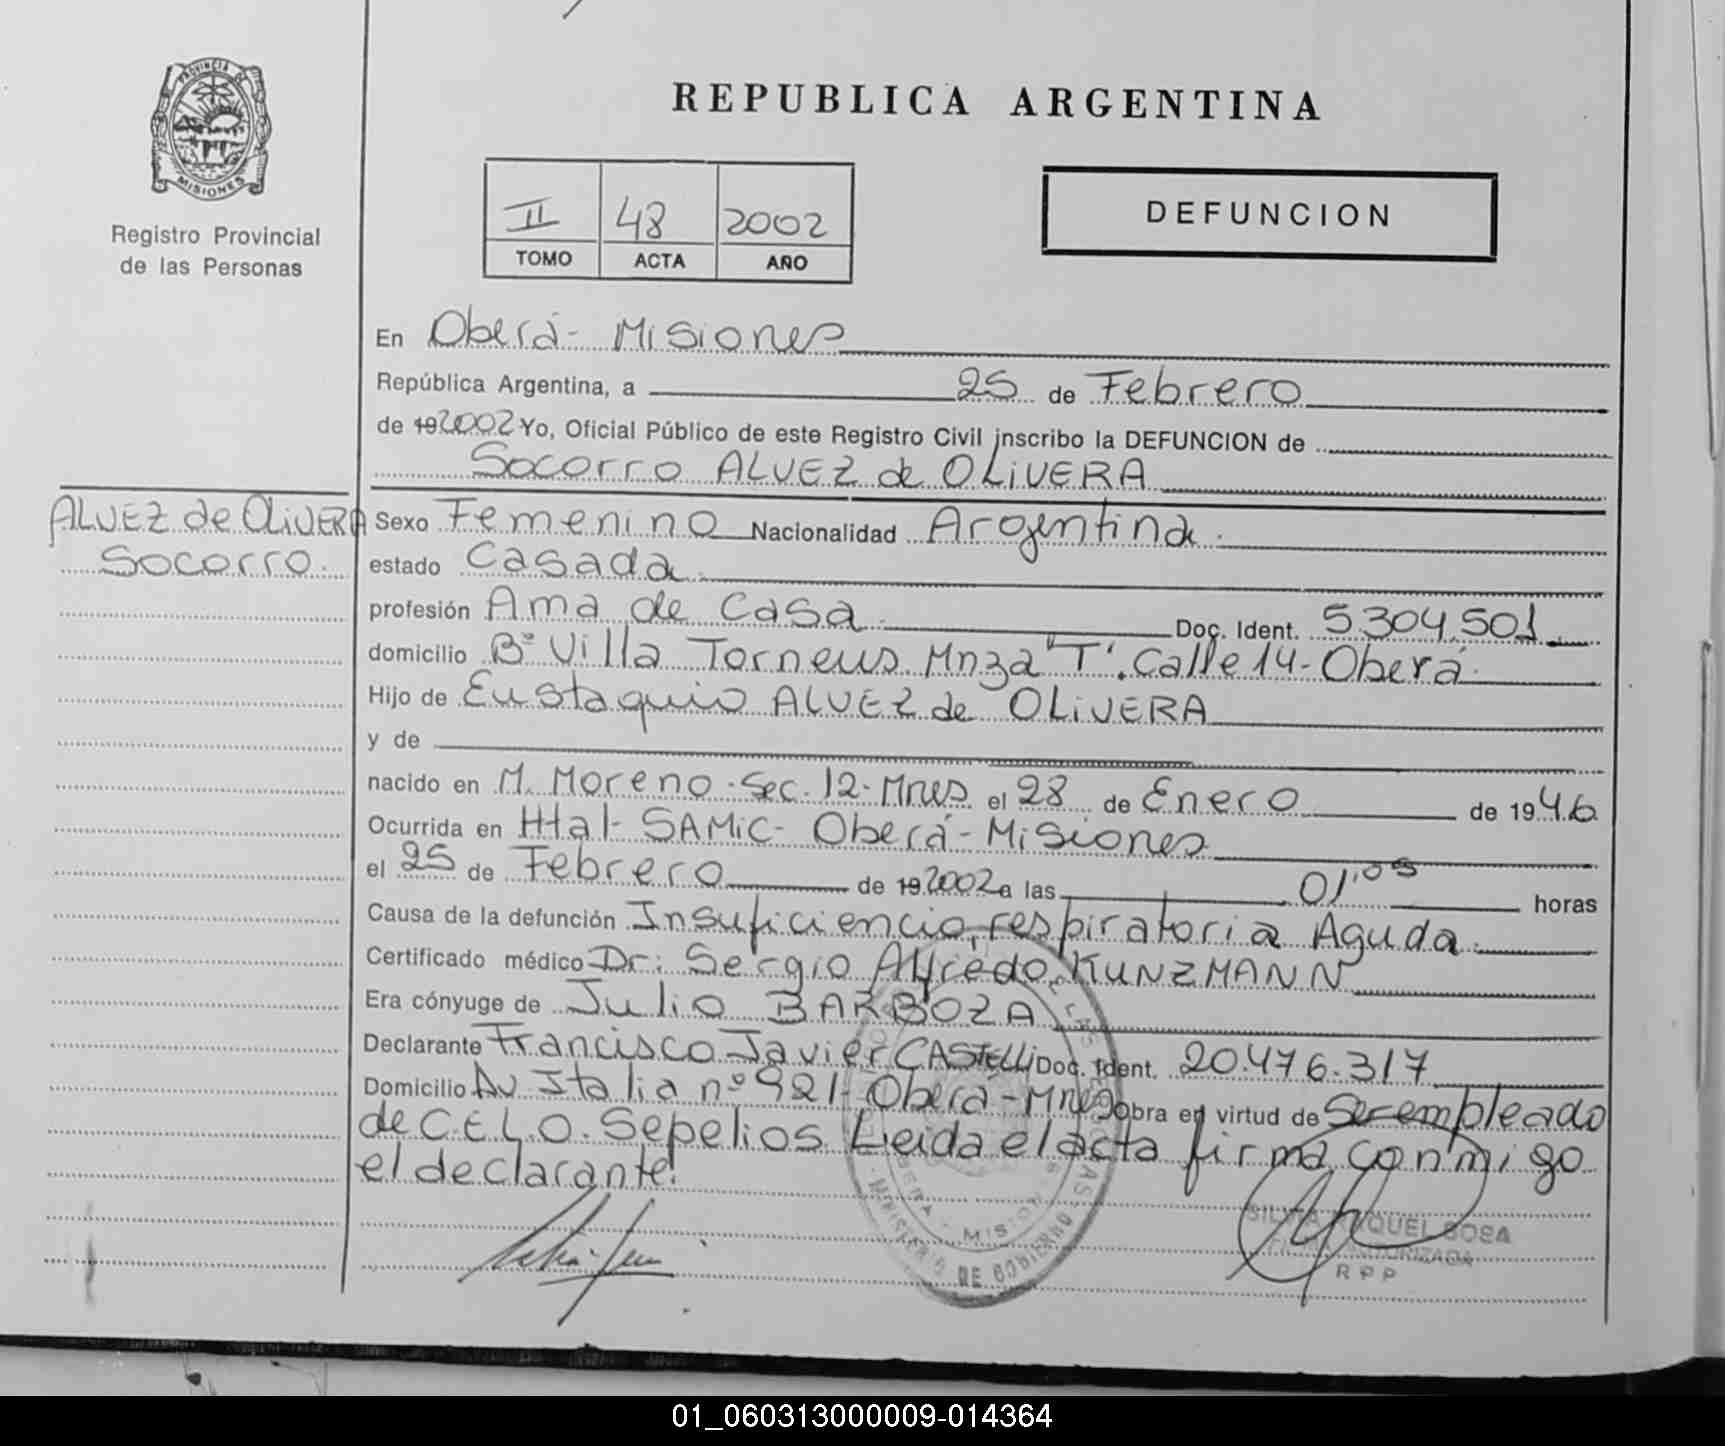 REPUBLICA ARGENTINA
PROVINCIA DE
MISIONES
Registro Provincial
de las Personas
II 48 2002
TOMO ACTA AÑO
DEFUNCION
En Oberá - Misiones
República Argentina, a 25 de Febrero
de 192002 Yo, Oficial Público de este Registro Civil inscribo la DEFUNCION de
Socorro ALVEZ de OLIVERA
ALVEZ de OLIVERA
Socorro.
Sexo Femenino Nacionalidad Argentina.
estado Casada.
profesión Ama de Casa. Doc. Ident. 5.304.501
domicilio Bº Villa Torneus Mnza "T". Calle 14 - Oberá.
Hijo de Eustaquio ALVEZ de OLIVERA
y de
nacido en M. Moreno - Sec. 12 - Mnes el 28 de Enero de 1946
Ocurrida en Htal - SAMIC - Oberá - Misiones
el 25 de Febrero de 192002 a las 01,05 horas
Causa de la defunción Insuficiencia respiratoria Aguda.
Certificado médico Dr: Sergio Alfredo KUNZMANN
Era cónyuge de Julio BARBOZA
Declarante Francisco Javier CASTELLI Doc. Ident. 20.476.317
Domicilio Av. Italia nº 921 - Oberá - Mnes Obra en virtud de Ser empleado
de C.E.L.O. Sepelios Leida el acta firma conmigo
el declarante.
MISIONES
MINISTERIO DE GOBIERNO
SILVIA RAQUEL SOSA
FIRMA AUTORIZADA
R P P
01_060313000009-014364